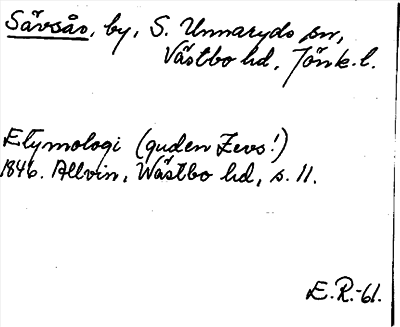 Sävsås, by, S. Unnaryds sn,
Västbo hd, Jönk. l.
Etymologi (guden Zevs!)
1846. Allvin, Wästbo hd, s. 11.
E.R.-61.